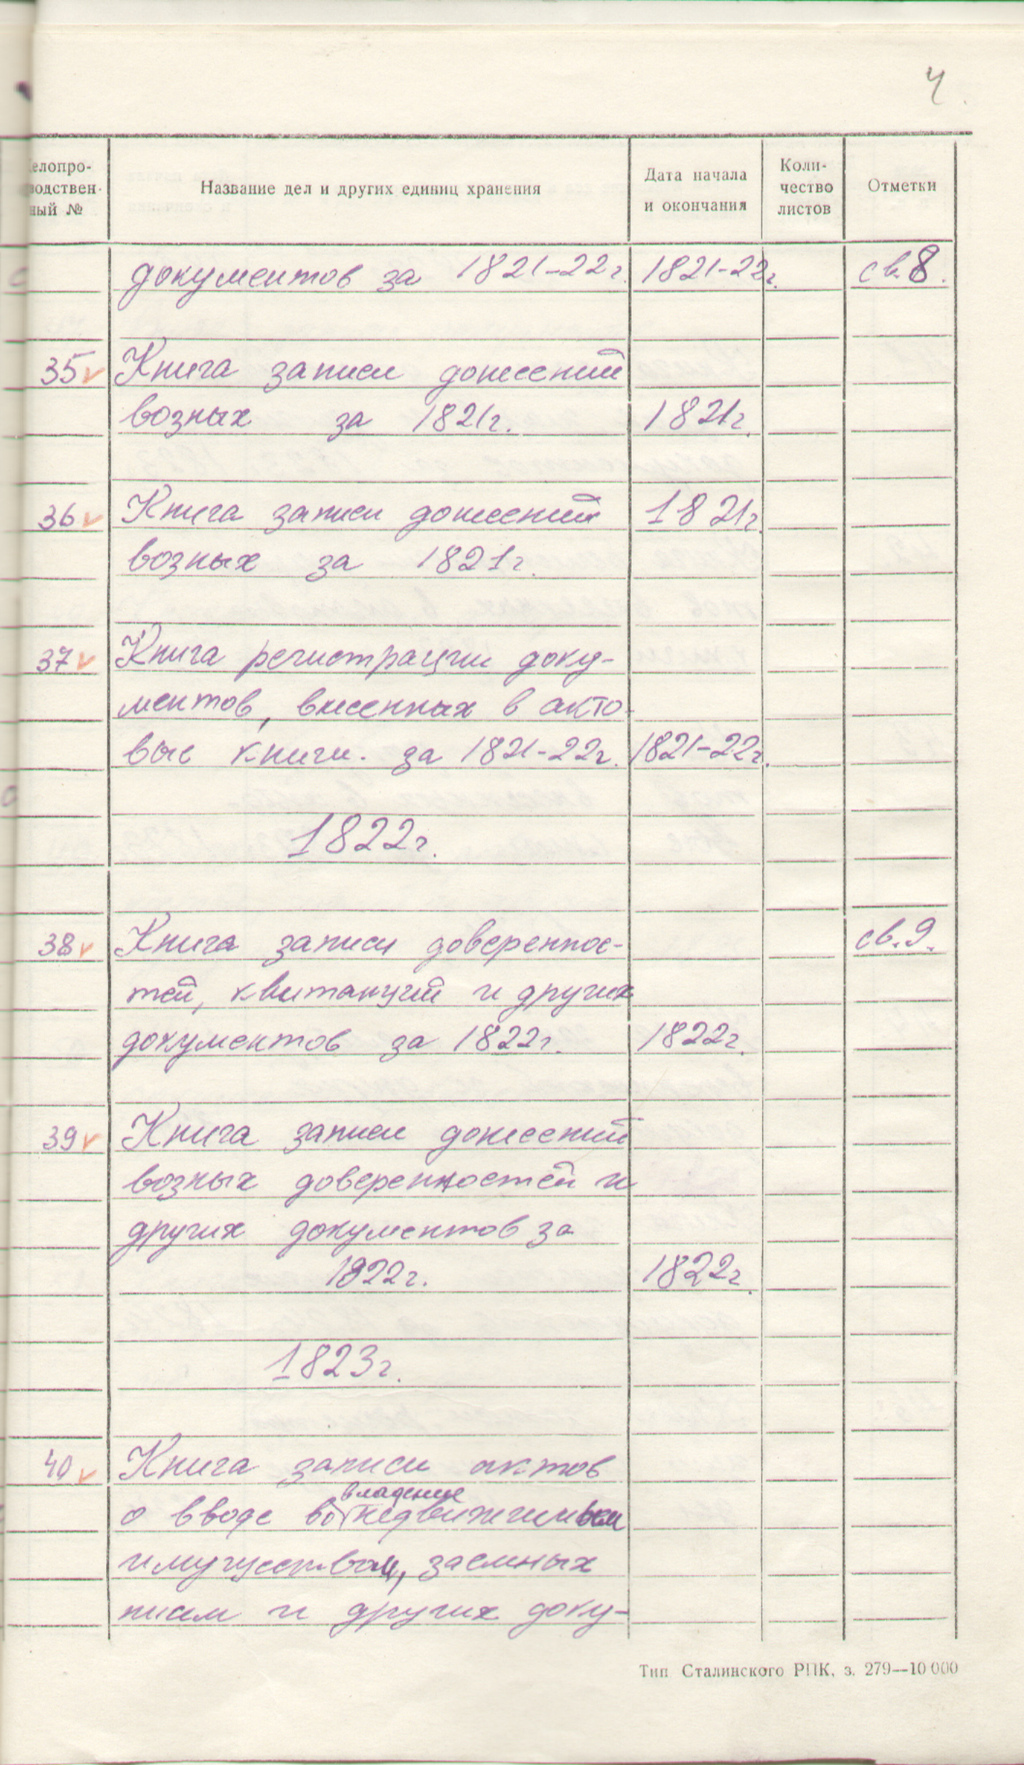 4.
елопро-
водствен-
ный №
Название дел и других единиц хранения
Дата начала
и окончания
Коли-
чество
листов
Отметки
документов за 1821-22г. 1821-22г. св.8.
35 Книга записи донесений
возных за 1821г. 1821г.
36 Книга записи донесений 1821г.
возных за 1821г.
37 Книга регистрации доку-
ментов, внесенных в акто-
вые книги. за 1821-22г. 1821-22г.
1822г.
38 Книга записи довереннос- св.9.
тей, квитанций и других
документов за 1822г. 1822г.
39 Книга записи донесений
возных доверенностей и
других документов за
1822г. 1822г.
1823г.
40 Книга записи актов
владение
о вводе во недвижимым
имуществом, заемных
писем и других доку-
Тип Сталинского РПК, з. 279—10 000